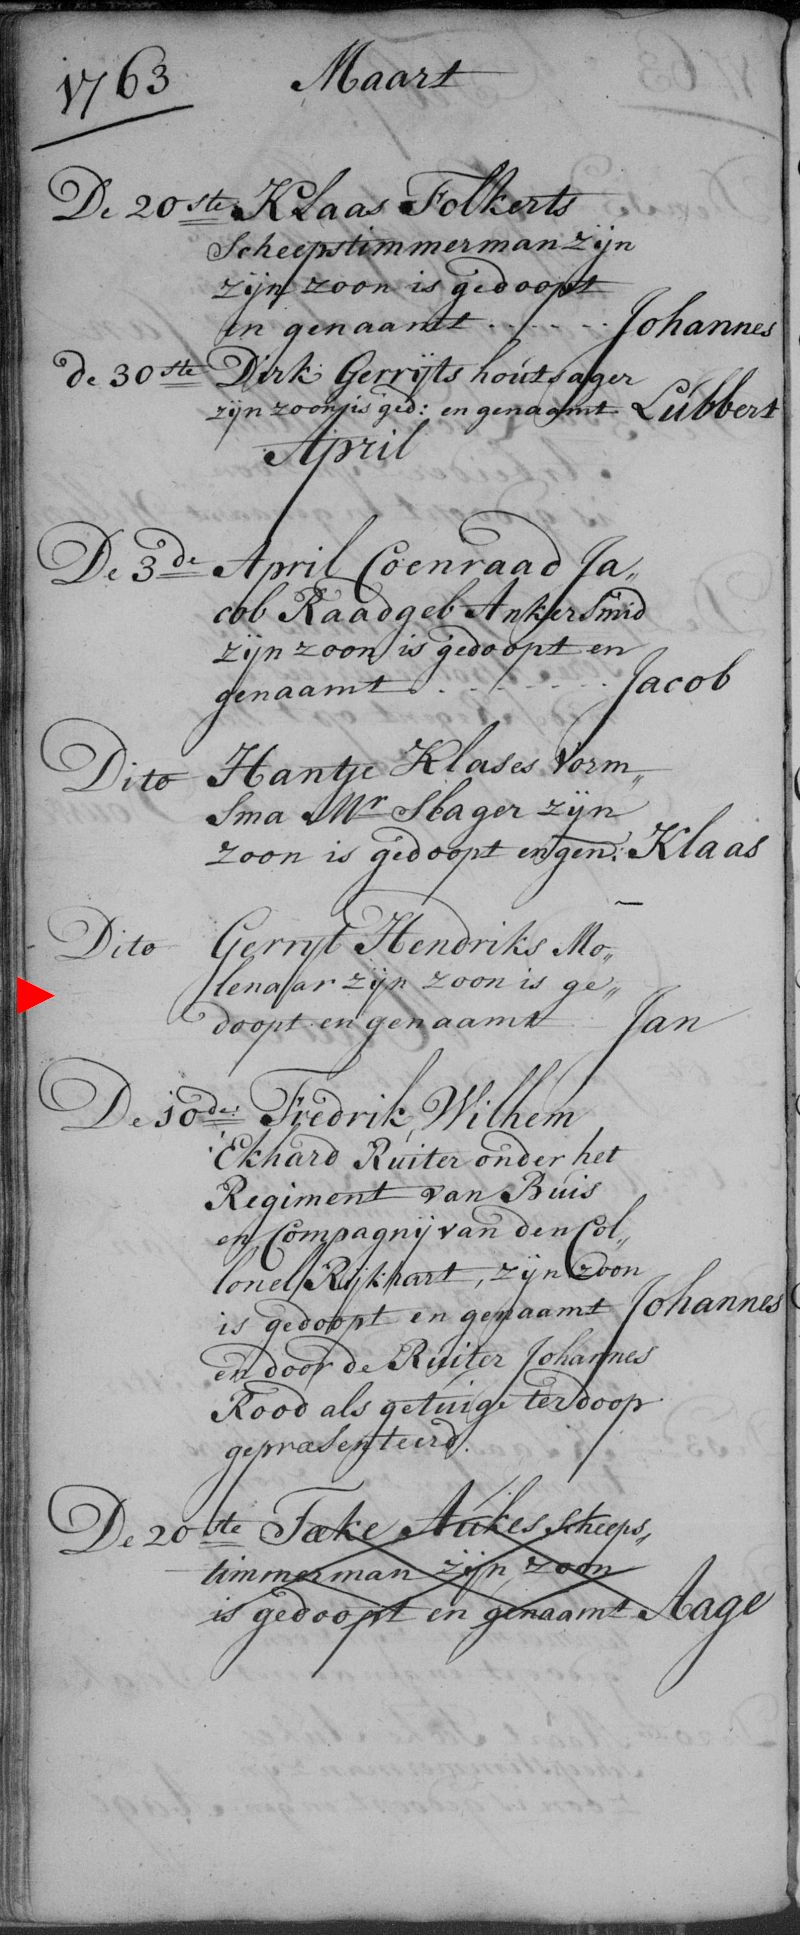 1763 Maart
De 20ste Klaas Folkerts
Scheepstimmerman zijn
zijn zoon is gedoopt
en genaamt . . . . . . Johannes
de 30ste Dirk Gerrijts houtsager
zijn zoon is ged: en genaamt Lubbert
April
De 3de April Coenraad Ja„
cob Raadgeb Ankersmid
zijn zoon is gedoopt en
genaamt . . . . . . . . . Jacob
Dito Hantje Klases Vorm„
sma Mr Slager zijn
zoon is gedoopt en gen: Klaas
Dito Gerryt Hendriks Mo„
lenaar zijn zoon is ge„
doopt en genaamt Jan
De 10de Fredrik Wilhem
Ekhard Ruiter onder het
Regiment van Buis
en Compagnij van den Col„
lonel Rijkhart, zijn zoon
is gedoopt en genaamt Johannes
en door de Ruiter Johannes
Rood als getuige ter doop
gepræsenteerd.
De 20ste Fæke Aukes scheeps„
timmerman zijn zoon
is gedoopt en genaamt Aage